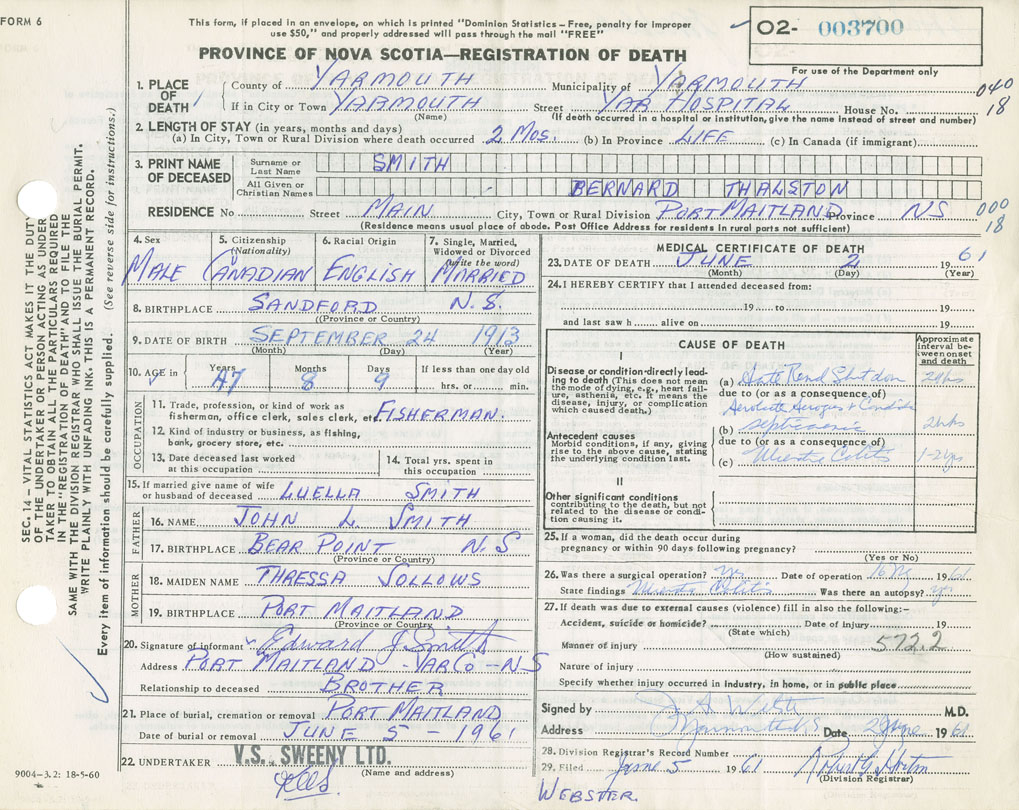 FORM 6
This form, if placed in an envelope, on which is printed "Dominion Statistics – Free, penalty for improper
use $50," and properly addressed will pass through the mail "FREE"
PROVINCE OF NOVA SCOTIA—REGISTRATION OF DEATH
O2- 003700
O2-
For use of the Department only
1. PLACE OF DEATH County of YARMOUTH Municipality of YARMOUTH 040
If in City or Town YARMOUTH Street YAR HOSPITAL House No. 18
(Name) (If death occurred in a hospital or institution, give the name instead of street and number)
2. LENGTH OF STAY (in years, months and days)
(a) In City, Town or Rural Division where death occurred 2 Mos. (b) In Province LIFE (c) In Canada (if immigrant)
3. PRINT NAME OF DECEASED Surname or Last Name SMITH
All Given or Christian Names BERNARD THALSTON
RESIDENCE No Street MAIN City, Town or Rural Division PORT MAITLAND Province NS 000
(Residence means usual place of abode. Post Office Address for residents in rural parts not sufficient) 18
4. Sex 5. Citizenship (Nationality) 6. Racial Origin 7. Single, Married, Widowed or Divorced (write the word)
MALE CANADIAN ENGLISH MARRIED
8. BIRTHPLACE SANDFORD N.S.
(Province or Country)
9. DATE OF BIRTH SEPTEMBER 24 1913
(Month) (Day) (Year)
10. AGE in Years Months Days If less than one day old
47 8 9 hrs. or min.
OCCUPATION
11. Trade, profession, or kind of work as
fisherman, office clerk, sales clerk, etc. FISHERMAN.
12. Kind of industry or business, as fishing,
bank, grocery store, etc.
13. Date deceased last worked
at this occupation
14. Total yrs. spent in
this occupation
15. If married give name of wife
or husband of deceased LUELLA SMITH
FATHER
16. NAME JOHN L SMITH
17. BIRTHPLACE BEAR POINT N.S
(Province or Country)
MOTHER
18. MAIDEN NAME THRESSA SOLLOWS
19. BIRTHPLACE PORT MAITLAND
(Province or Country
20. Signature of informant Edward J. Smith
Address PORT MAITLAND - YAR CO - NS
Relationship to deceased BROTHER
21. Place of burial, cremation or removal PORT MAITLAND
Date of burial or removal JUNE 5 - 1961
22. UNDERTAKER V.S. SWEENY LTD.
(Name and address)
9004-3.2: 18-5-60
MEDICAL CERTIFICATE OF DEATH
23. DATE OF DEATH JUNE 2 1961
(Month) (Day) (Year)
24. I HEREBY CERTIFY that I attended deceased from:
19 to 19
and last saw h alive on 19
CAUSE OF DEATH
Approximate interval between onset and death
I
Disease or condition directly leading to death (This does not mean the mode of dying, e.g., heart failure, asthenia, etc. It means the disease, injury, or complication which caused death.)
(a) 24hs
due to (or as a consequence of)
Antecedent causes
Morbid conditions, if any, giving rise to the above cause, stating the underlying condition last.
(b) septicaemia
due to (or as a consequence of)
(c) Colitis 1-2 yrs
II
Other significant conditions
contributing to the death, but not related to the disease or condition causing it.
25. If a woman, did the death occur during
pregnancy or within 90 days following pregnancy?
(Yes or No)
26. Was there a surgical operation? yes Date of operation 1961
State findings Colitis Was there an autopsy? yes
27. If death was due to external causes (violence) fill in also the following:–
Accident, suicide or homicide? Date of injury 19
(State which)
Manner of injury 572.2
(How sustained)
Nature of injury
Specify whether injury occurred in industry, in home, or in public place
Signed by M.D.
Address Date 2 June 1961
28. Division Registrar's Record Number
29. Filed June 5 1961
(Division Registrar)
WEBSTER.
SEC. 14 – VITAL STATISTICS ACT MAKES IT THE DUTY
OF THE UNDERTAKER OR PERSON ACTING AS UNDER
TAKER TO OBTAIN ALL THE PARTICULARS REQUIRED
IN THE "REGISTRATION OF DEATH" AND TO FILE THE
SAME WITH THE DIVISION REGISTRAR WHO SHALL ISSUE THE BURIAL PERMIT.
WRITE PLAINLY WITH UNFADING INK. THIS IS A PERMANENT RECORD.
Every item of information should be carefully supplied. (See reverse side for instructions.)